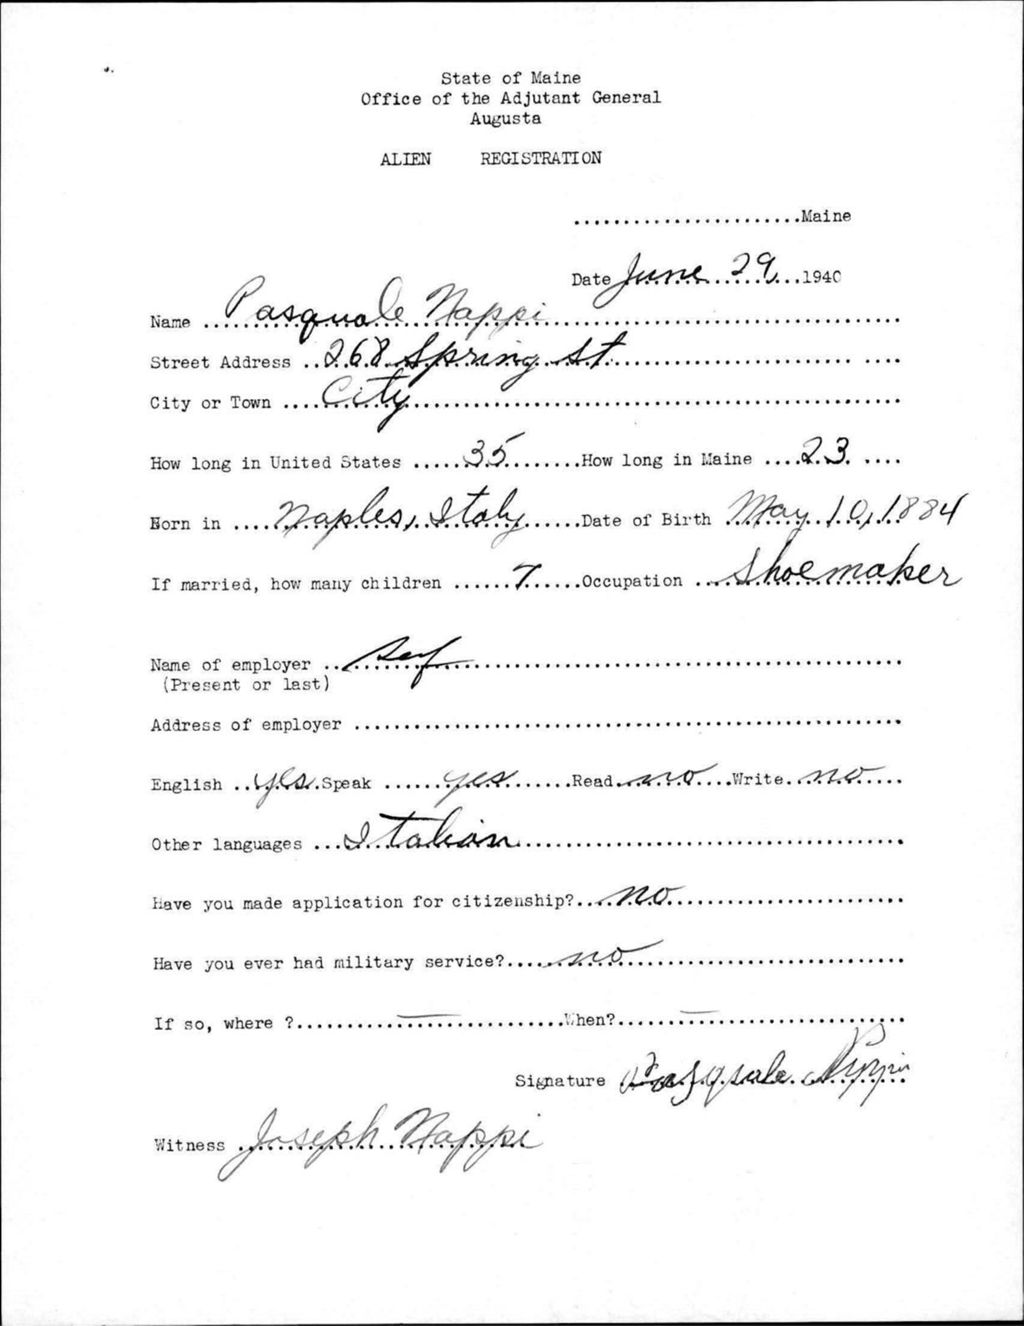 State of Maine
Office of the Adjutant General
Augusta
ALIEN REGISTRATION
.......................Maine
Date June 29 1940
Name Pasquale Nappi
Street Address 268 Spring St.
City or Town City
How long in United States 35 How long in Maine 23
Born in Naples, Italy Date of Birth May 10, 1884
If married, how many children 7 Occupation Shoemaker
Name of employer Self
(Present or last)
Address of employer
English yes Speak yes Read no Write no
Other languages Italian
Have you made application for citizenship? no
Have you ever had military service? no
If so, where ? — When? —
Signature Pasquale Nappi
Witness Joseph Nappi